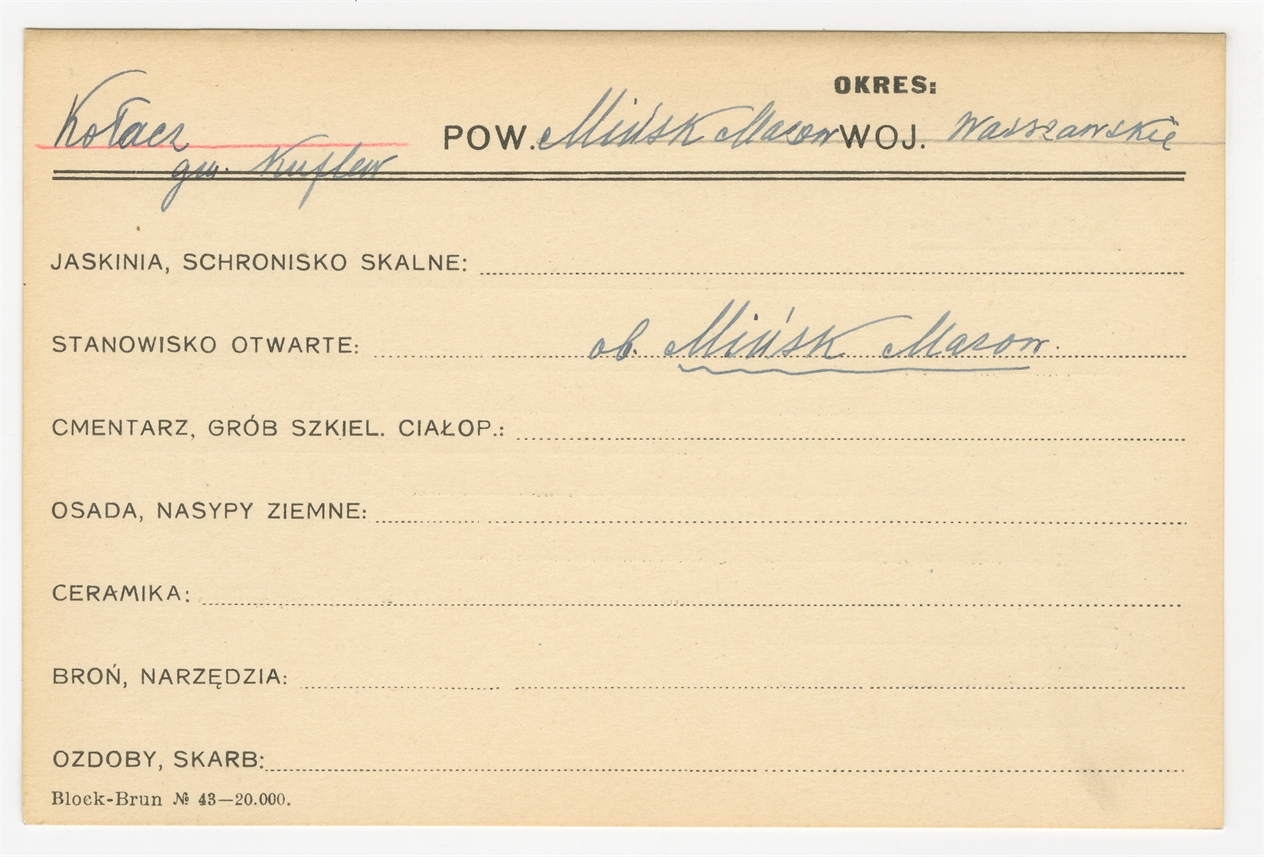 OKRES:
Kołacz POW. Mińsk Mazow WOJ. Warszawskie
gm. Kuflew
JASKINIA, SCHRONISKO SKALNE:
STANOWISKO OTWARTE: ob. Mińsk Mazow.
CMENTARZ, GRÓB SZKIEL. CIAŁOP.:
OSADA, NASYPY ZIEMNE:
CERAMIKA:
BROŃ, NARZĘDZIA:
OZDOBY, SKARB:
Block-Brun № 43—20.000.